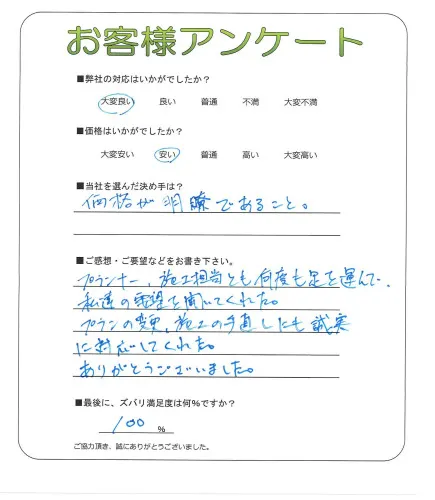 お客様アンケート
■弊社の対応はいかがでしたか？
大変良い 良い 普通 不満 大変不満
■価格はいかがでしたか？
大変安い 安い 普通 高い 大変高い
■当社を選んだ決め手は？
価格が明瞭であること。
■ご感想・ご要望などをお書き下さい。
プランナー、施工担当とも何度も足を運んで、
私達の要望を聞いてくれた。
プランの変更、施工の手直しにも誠実
に対応してくれた。
ありがとうございました。
■最後に、ズバリ満足度は何％ですか？
100 ％
ご協力頂き、誠にありがとうございました。